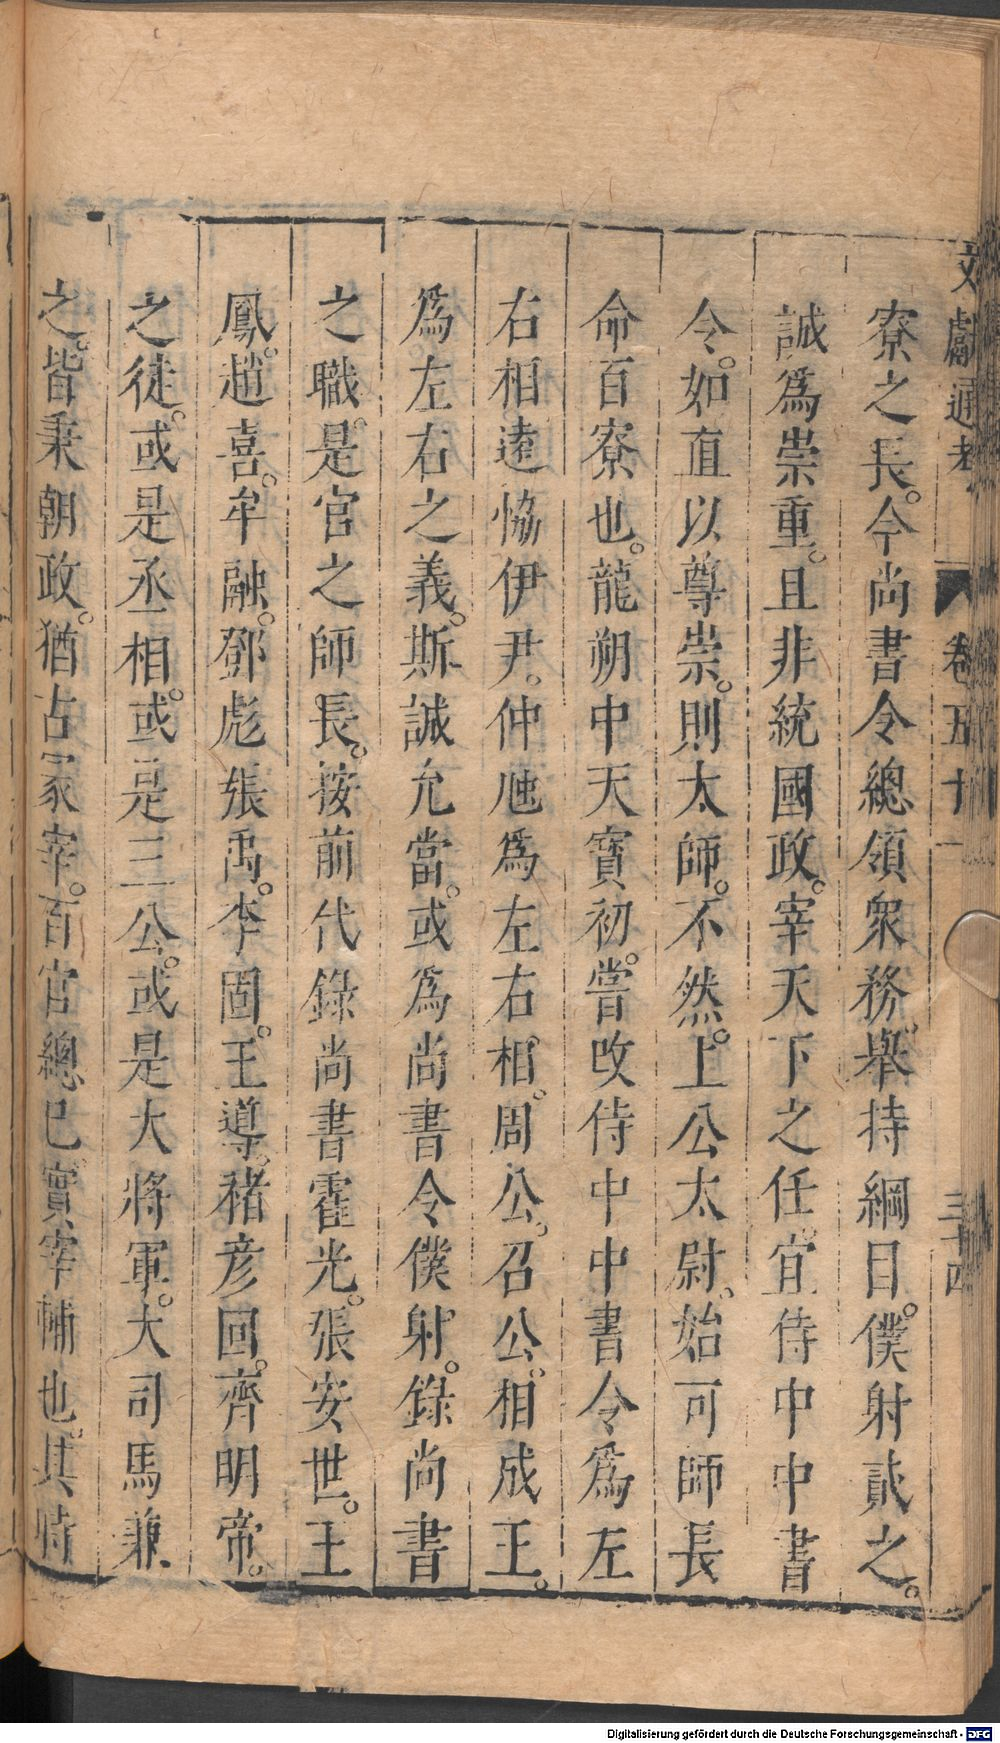 文獻通考 卷五十一 三十四
寮之長。今尚書令總領衆務。舉持綱目。僕射貳之。
誠爲崇重。且非統國政。宰天下之任。宜侍中中書
令。如直以尊崇。則太師。不然。上公太尉。始可師長
命百寮也。龍朔中天寳初。嘗改侍中中書令爲左
右相遠恊伊尹。仲虺爲左右相。周公。召公。相成王。
爲左右之義。斯誠允當。或爲尚書令僕射。錄尚書
之職。是官之師長。按前代錄尚書霍光。張安世。王
鳳。趙喜。牟融。鄧彪張禹。李固。王導。褚彦回。齊明帝。
之徒。或是丞相。或是三公。或是大將軍。大司馬兼
之。皆秉朝政。猶古冢宰。百官總巳。實宰輔也。其時
Digitalisierung gefördert durch die Deutsche Forschungsgemeinschaft - DFG